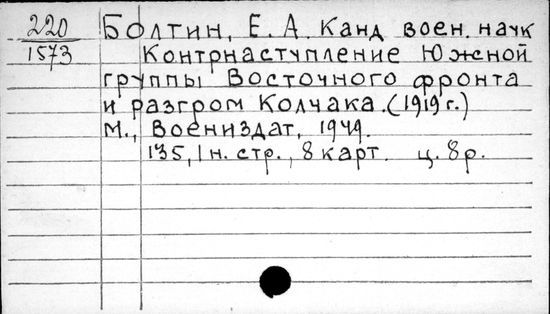 220 Болтин, Е. А. Канд воен. наук
1573 Контрнаступление Южной
группы Восточного фронта
и разгром Колчака. (1919 г.)
М., Воениздат, 1949.
135, 1 н. стр., 8 карт. ц. 8 р.